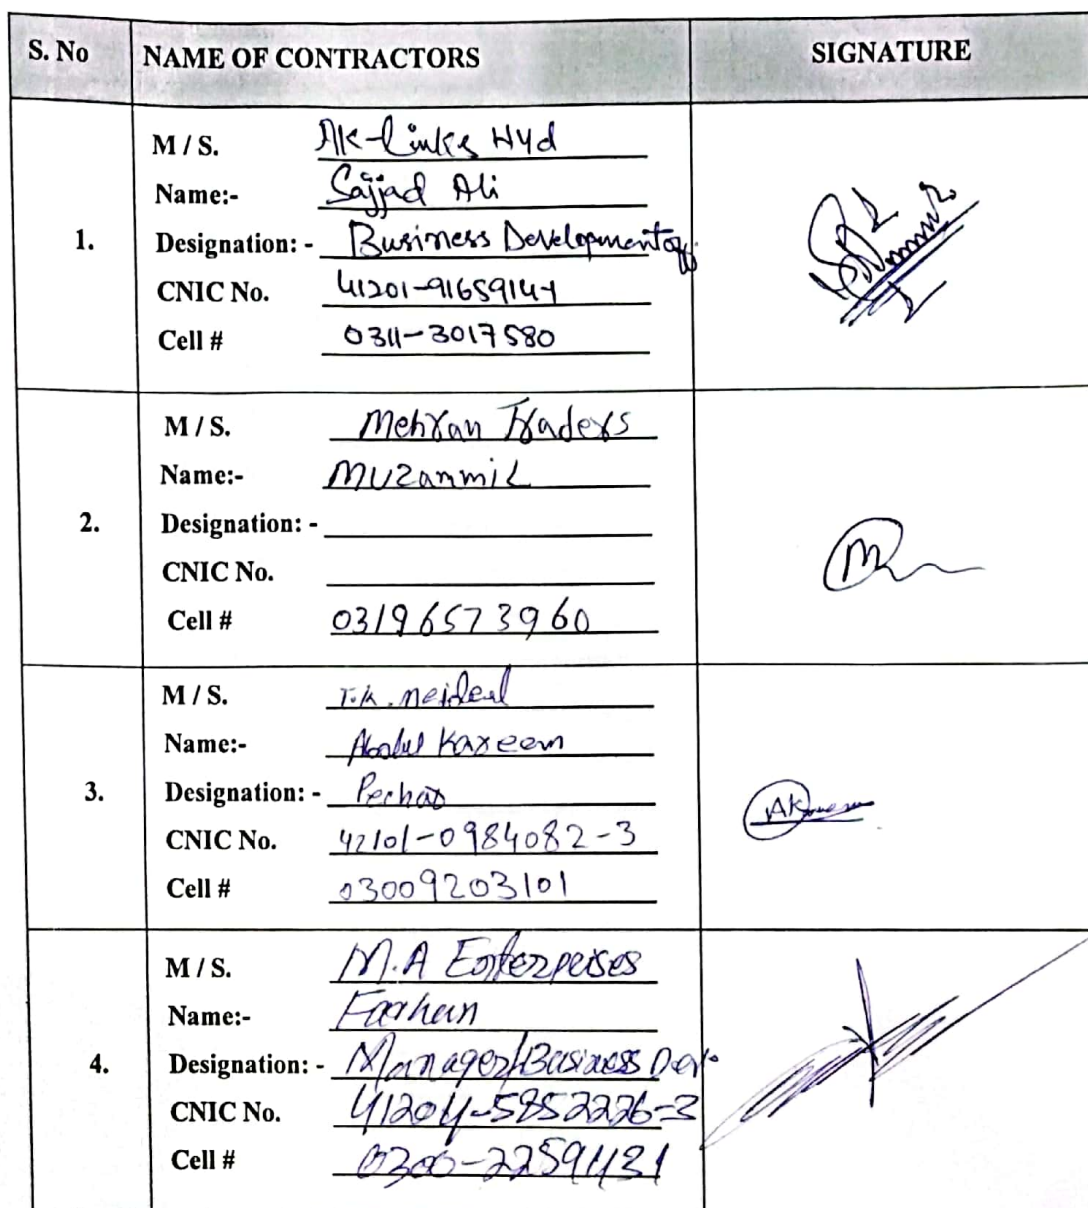 S. No NAME OF CONTRACTORS SIGNATURE
1.
M / S. AK-Links Hyd
Name:- Sajjad Ali
Designation: - Business Development off.
CNIC No. 41201-9165914-1
Cell # 0311-3017580
2.
M / S. Mehran Traders
Name:- Muzammil
Designation: -
CNIC No.
Cell # 03196573960
3.
M / S.
Name:- Abdul Kareem
Designation: -
CNIC No. 42101-0984082-3
Cell # 03009203101
4.
M / S. M.A Enterpeises
Name:- Farhan
Designation: - Manager/Business Dev.
CNIC No. 41204-5852226-3
Cell #